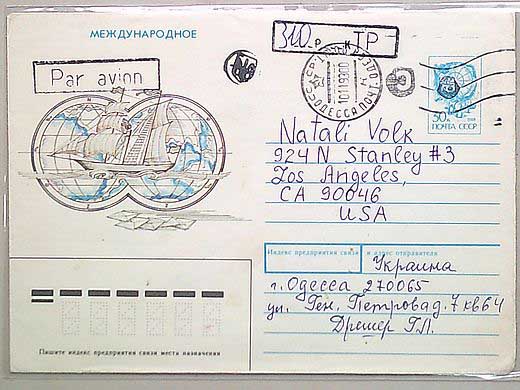 МЕЖДУНАРОДНОЕ
Par avion
310 Р К ТР
СССР
ОДЕССА ПОЧТ
10 11 99 00
30 к
ПОЧТА СССР
Natali Volk
924 N Stanley #3
Los Angeles,
CA 90046
USA
Индекс предприятия связи и адрес отправителя
Украина
г. Одесса 270065
ул. Ген. Петрова д. 7 кв 64
Дрешер Г.Л.
Пишите индекс предприятия связи места назначения